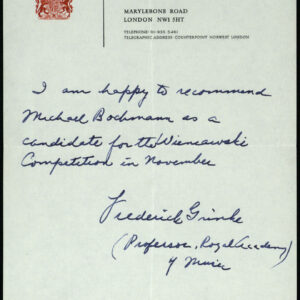 MARYLEBONE ROAD
LONDON NW1 5HT
TELEPHONE 01-935 5461
TELEGRAPHIC ADDRESS COUNTERPOINT NORWEST LONDON
I am happy to recommend
Michael Bochmann as a
candidate for the Wieniawski
Competition in November
Frederick Grinke
(Professor, Royal Academy)
of Music